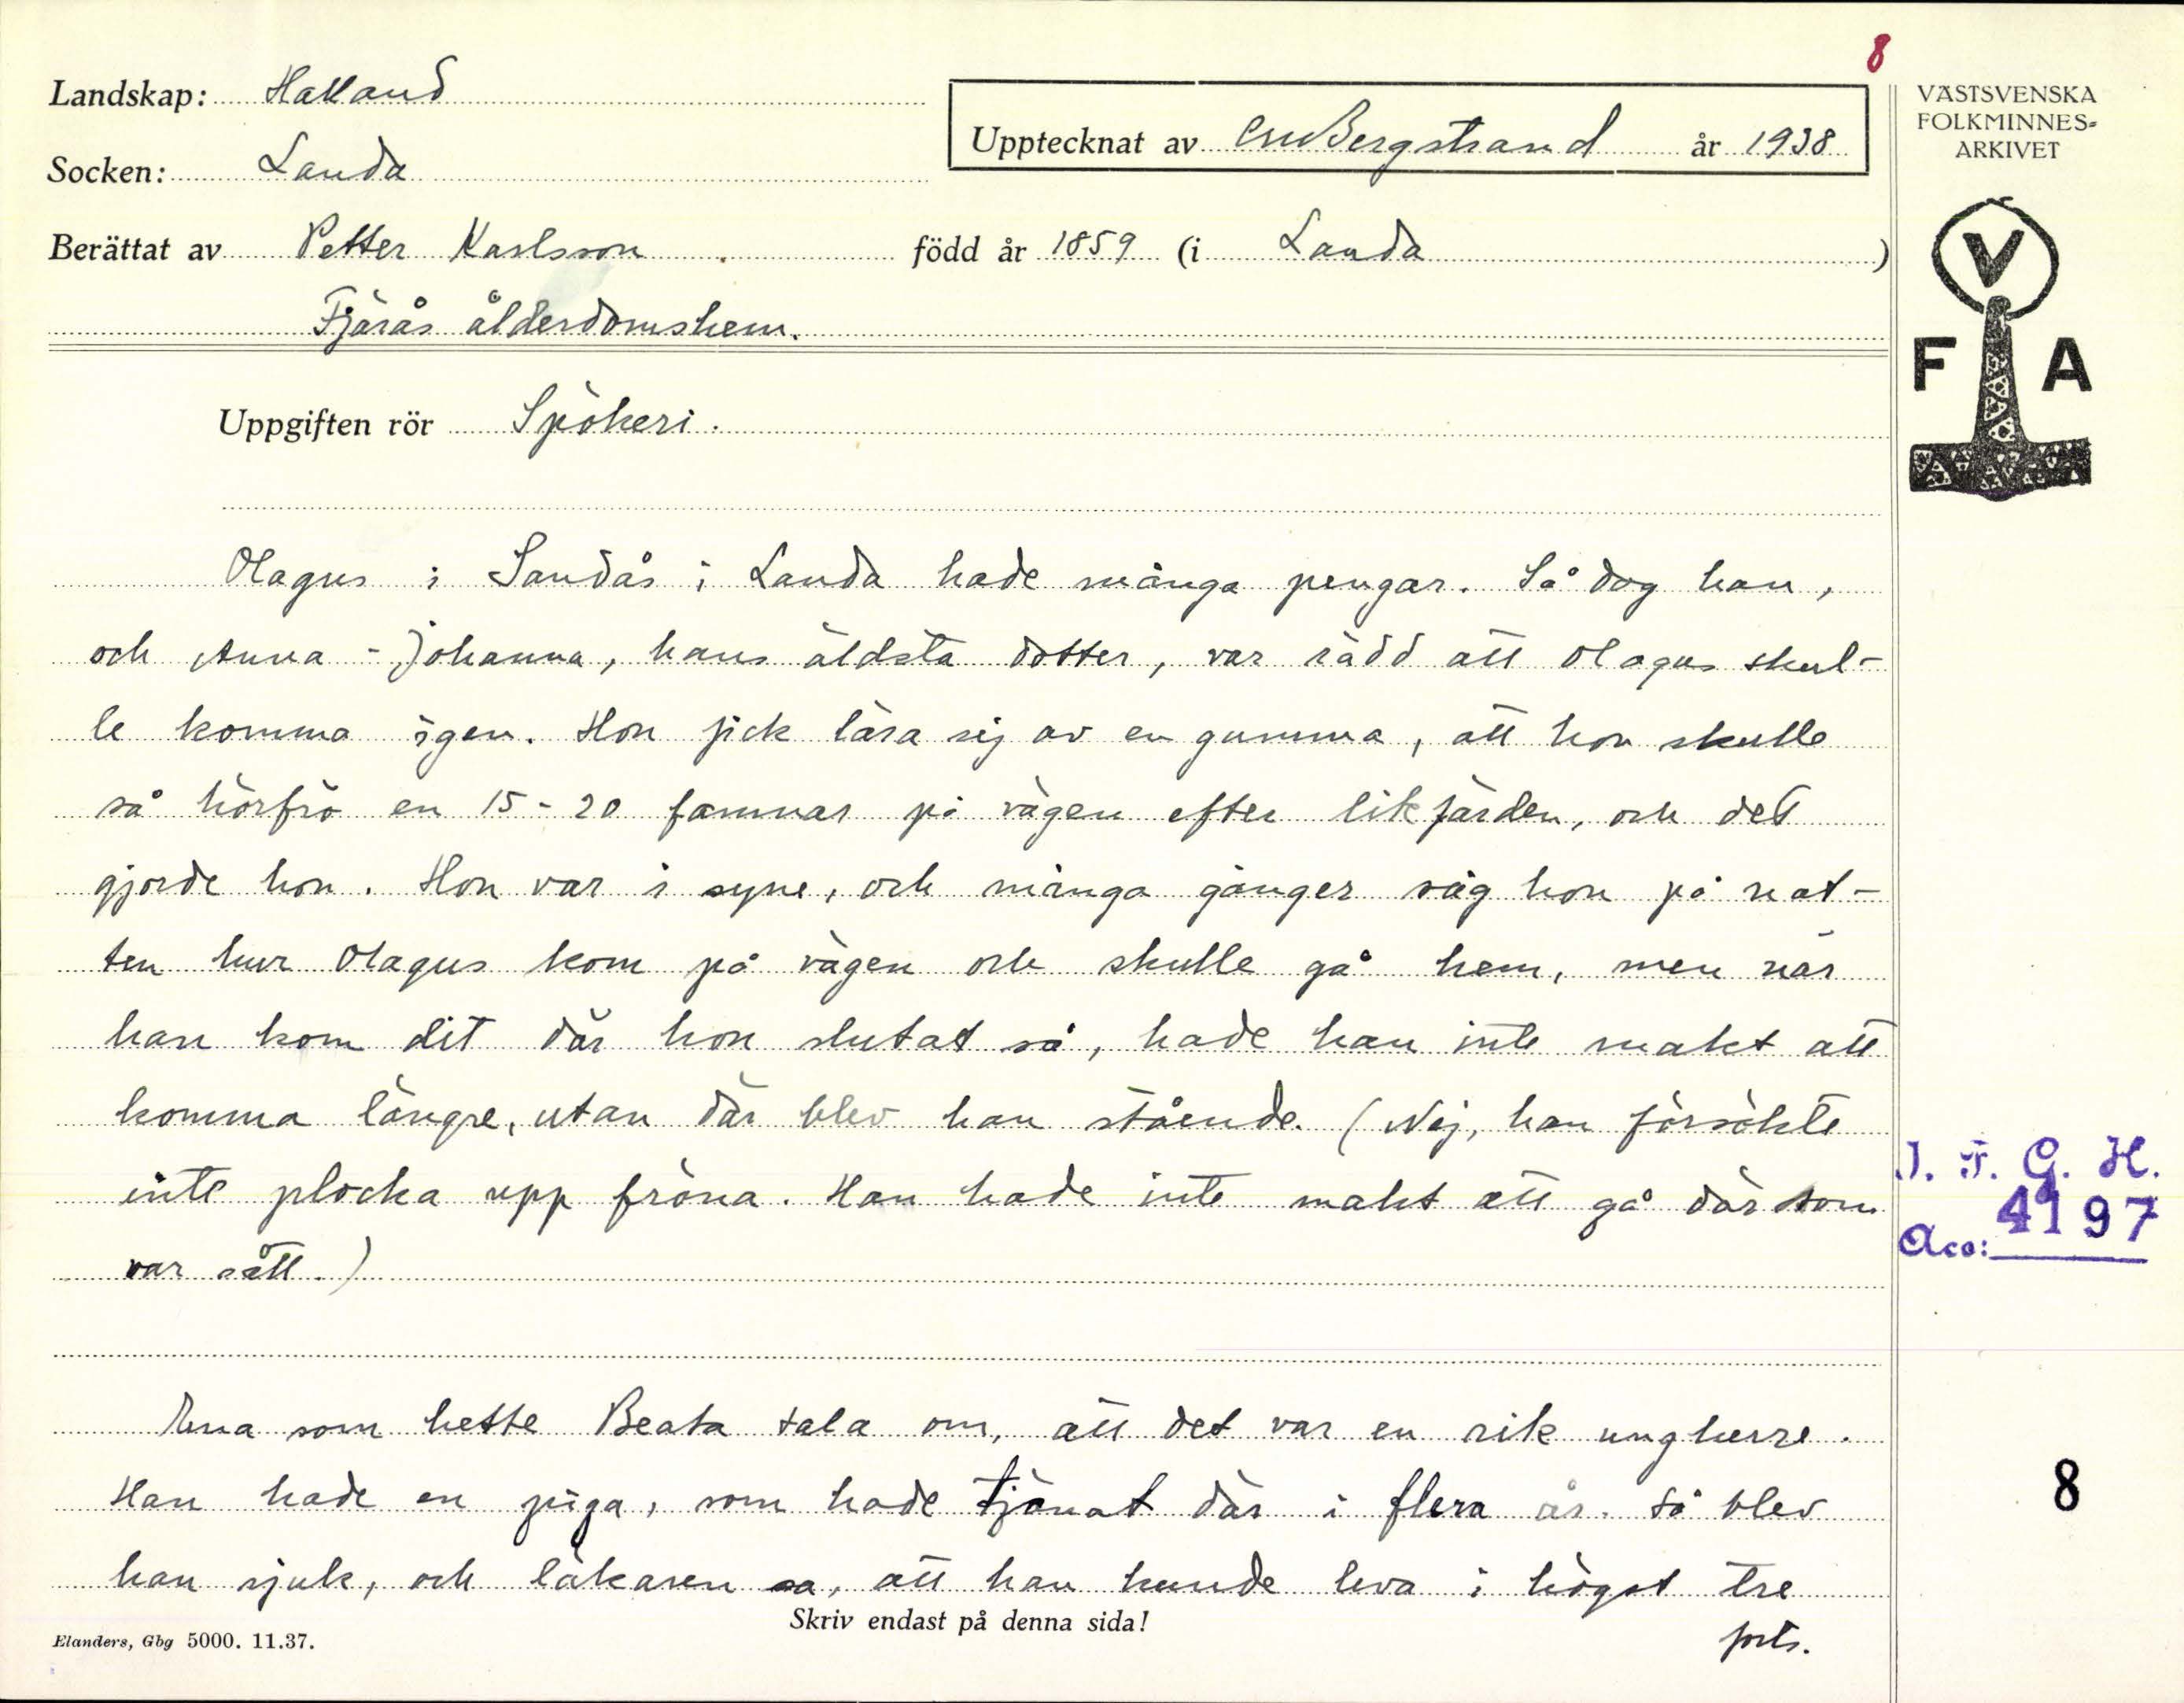 8
Landskap: Halland
Upptecknat av CMBergstrand år 1938
VÄSTSVENSKA
FOLKMINNES-
ARKIVET
Socken: Landa
Berättat av Petter Karlsson född år 1859 (i Landa)
Fjärås ålderdomshem.
V
F A
Uppgiften rör Spökeri.
Olagus i Sandås i Landa hade många pengar. Så dog han,
och Anna-Johanna, hans äldsta dotter, var rädd att Olagus skul-
le komma igen. Hon fick lära sig av en gumma, att hon skulle
så hörfrö en 15-20 famnar på vägen efter likfärden, och det
gjorde hon. Hon var i syne, och många gånger såg hon på nat-
ten hur Olagus kom på vägen och skulle gå hem, men när
han kom dit där hon slutat så, hade han inte makt att
komma längre, utan där blev han stående. (Nej, han försökte
inte plocka upp fröna. Han hade inte makt att gå där som
var sått.)
I. F. G. H.
Acc: 4197
Ena som hette Beata tala om, att det var en rik ungherre.
Han hade en piga, som hade tjänat där i flera år. Så blev
han sjuk, och läkaren sa, att han kunde leva i högst tre
8
Skriv endast på denna sida!
forts.
Elanders, Gbg 5000. 11.37.